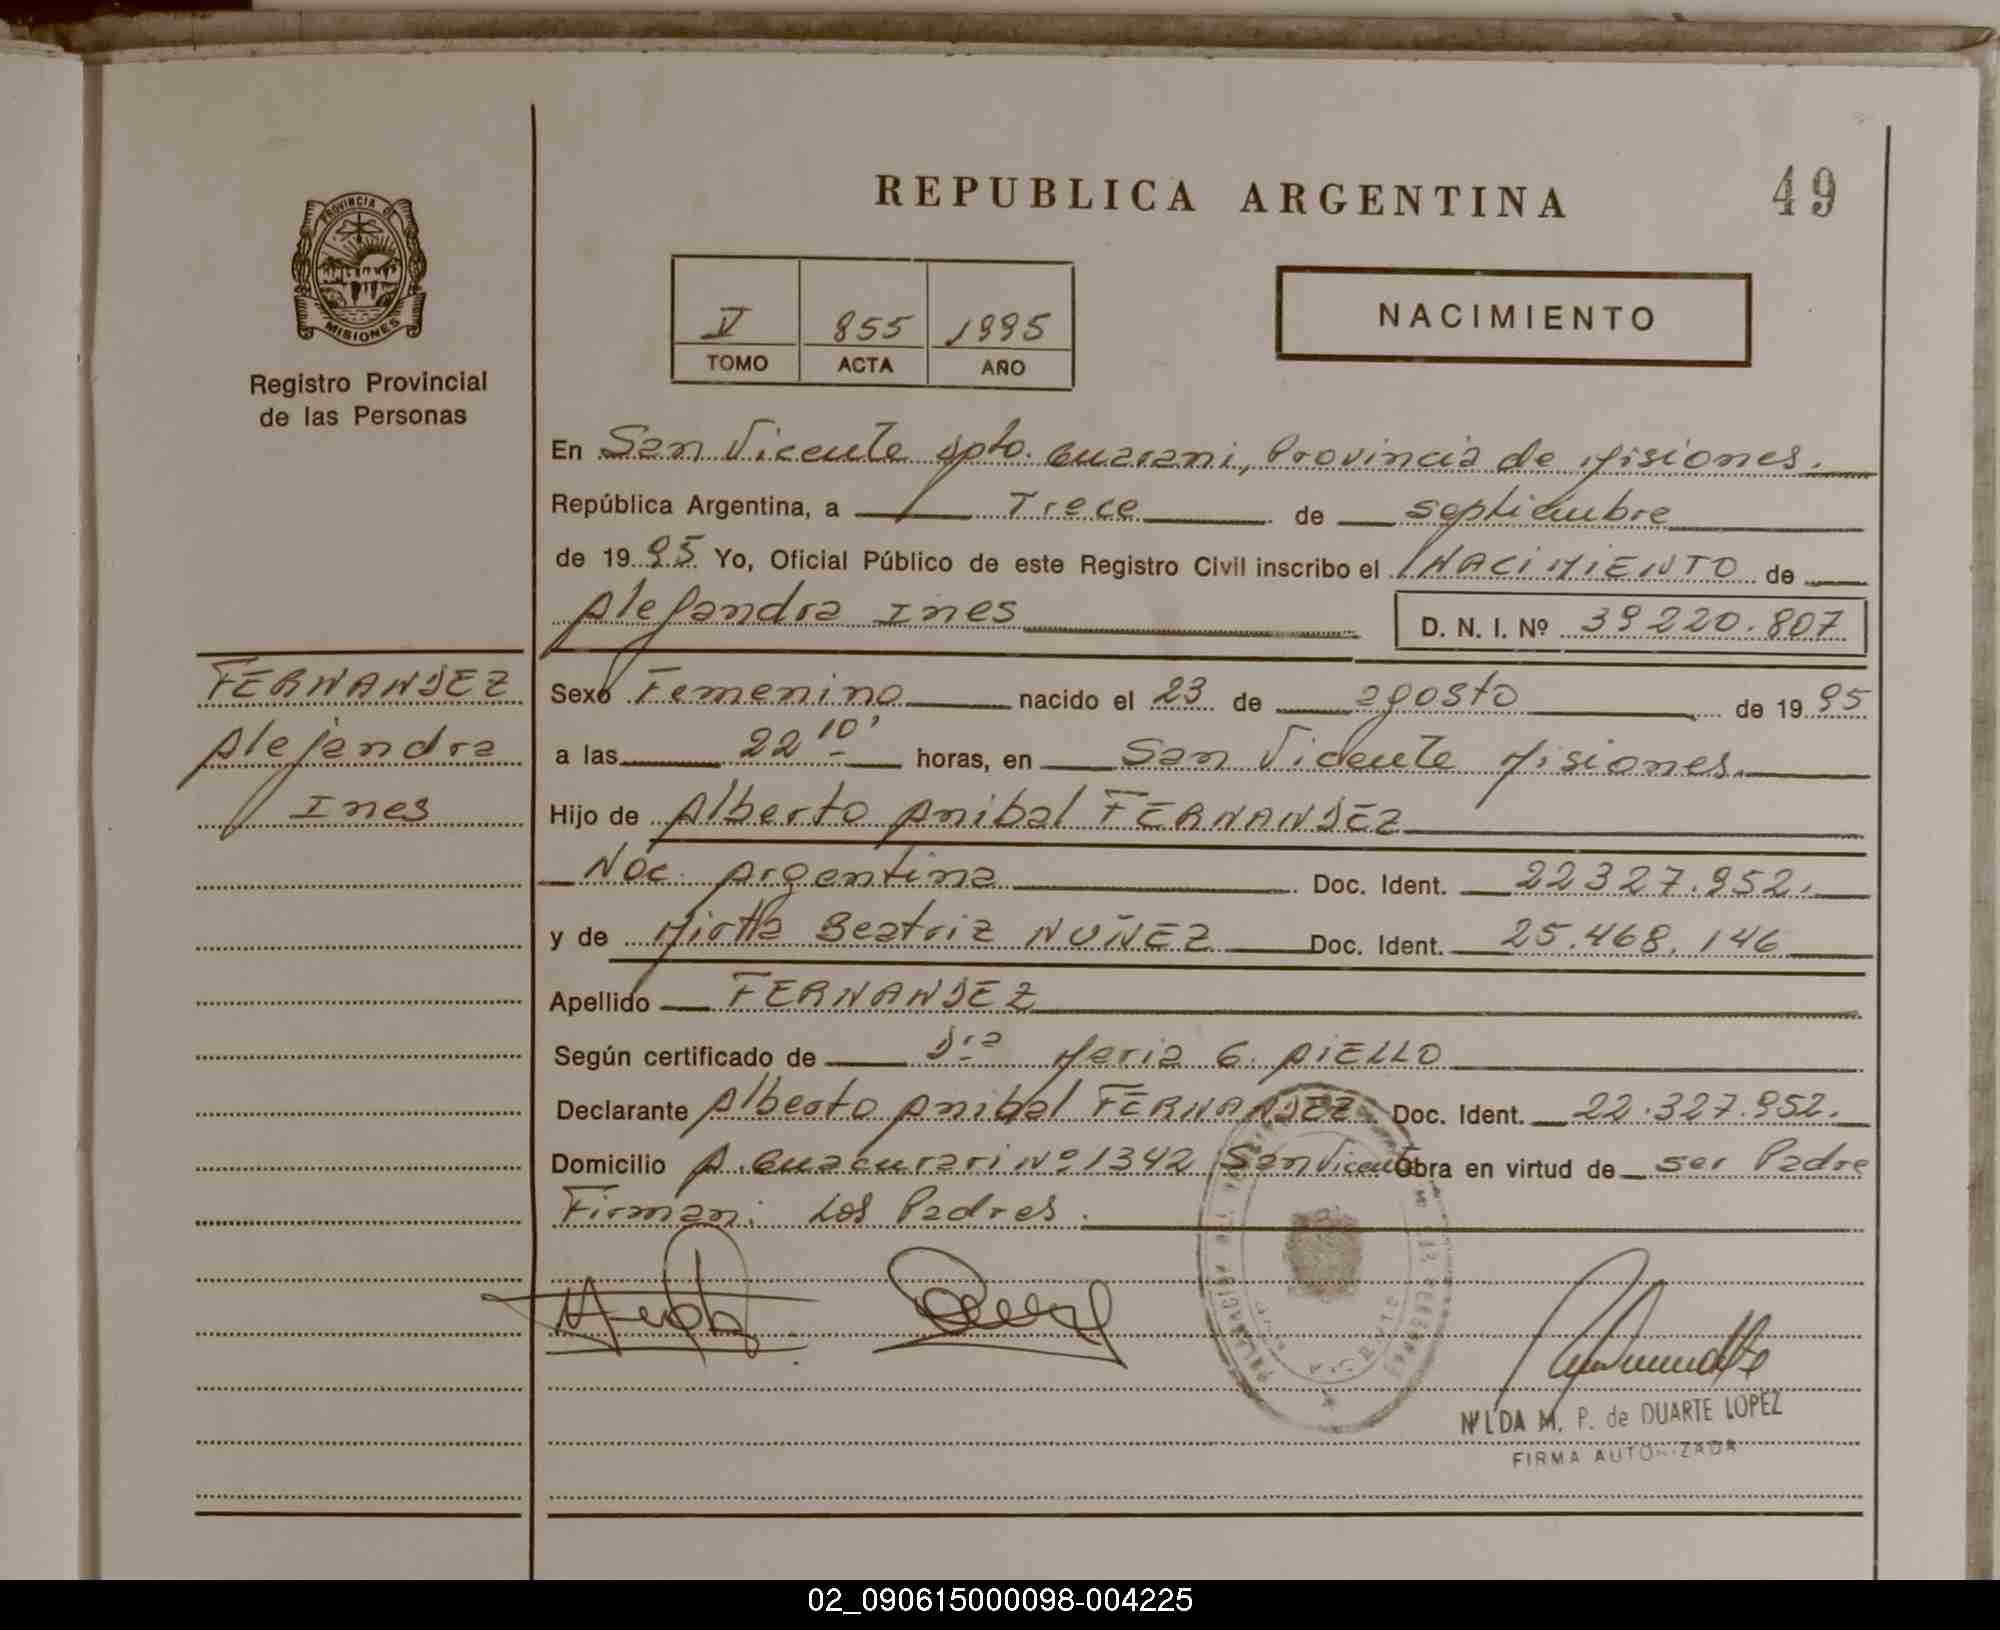 REPUBLICA ARGENTINA
49
PROVINCIA DE
MISIONES
Registro Provincial
de las Personas
V 855 1995
TOMO ACTA AÑO
NACIMIENTO
En San Vicente Dpto. Guarani, Provincia de Misiones.
República Argentina, a Trece de septiembre
de 1995 Yo, Oficial Público de este Registro Civil inscribo el NACIMIENTO de
Alejandra Ines D. N. I. Nº 39220.807
FERNANDEZ
Alejandra
Ines
Sexo Femenino nacido el 23 de agosto de 1995
a las 22 10' horas, en San Vicente Misiones.
Hijo de Alberto Anibal FERNANDEZ
Nac. Argentina Doc. Ident. 22327.952.
y de Mirtha Beatriz NUÑEZ Doc. Ident. 25.468.146
Apellido FERNANDEZ
Según certificado de Dra Maria G. AIELLO
Declarante Alberto Anibal FERNANDEZ Doc. Ident. 22.327.952.
Domicilio A. Guacurari Nº 1342 San Vicente Obra en virtud de ser Padre
Firman: Los Padres.
NILDA M. P. de DUARTE LOPEZ
FIRMA AUTORIZADA
02_090615000098-004225